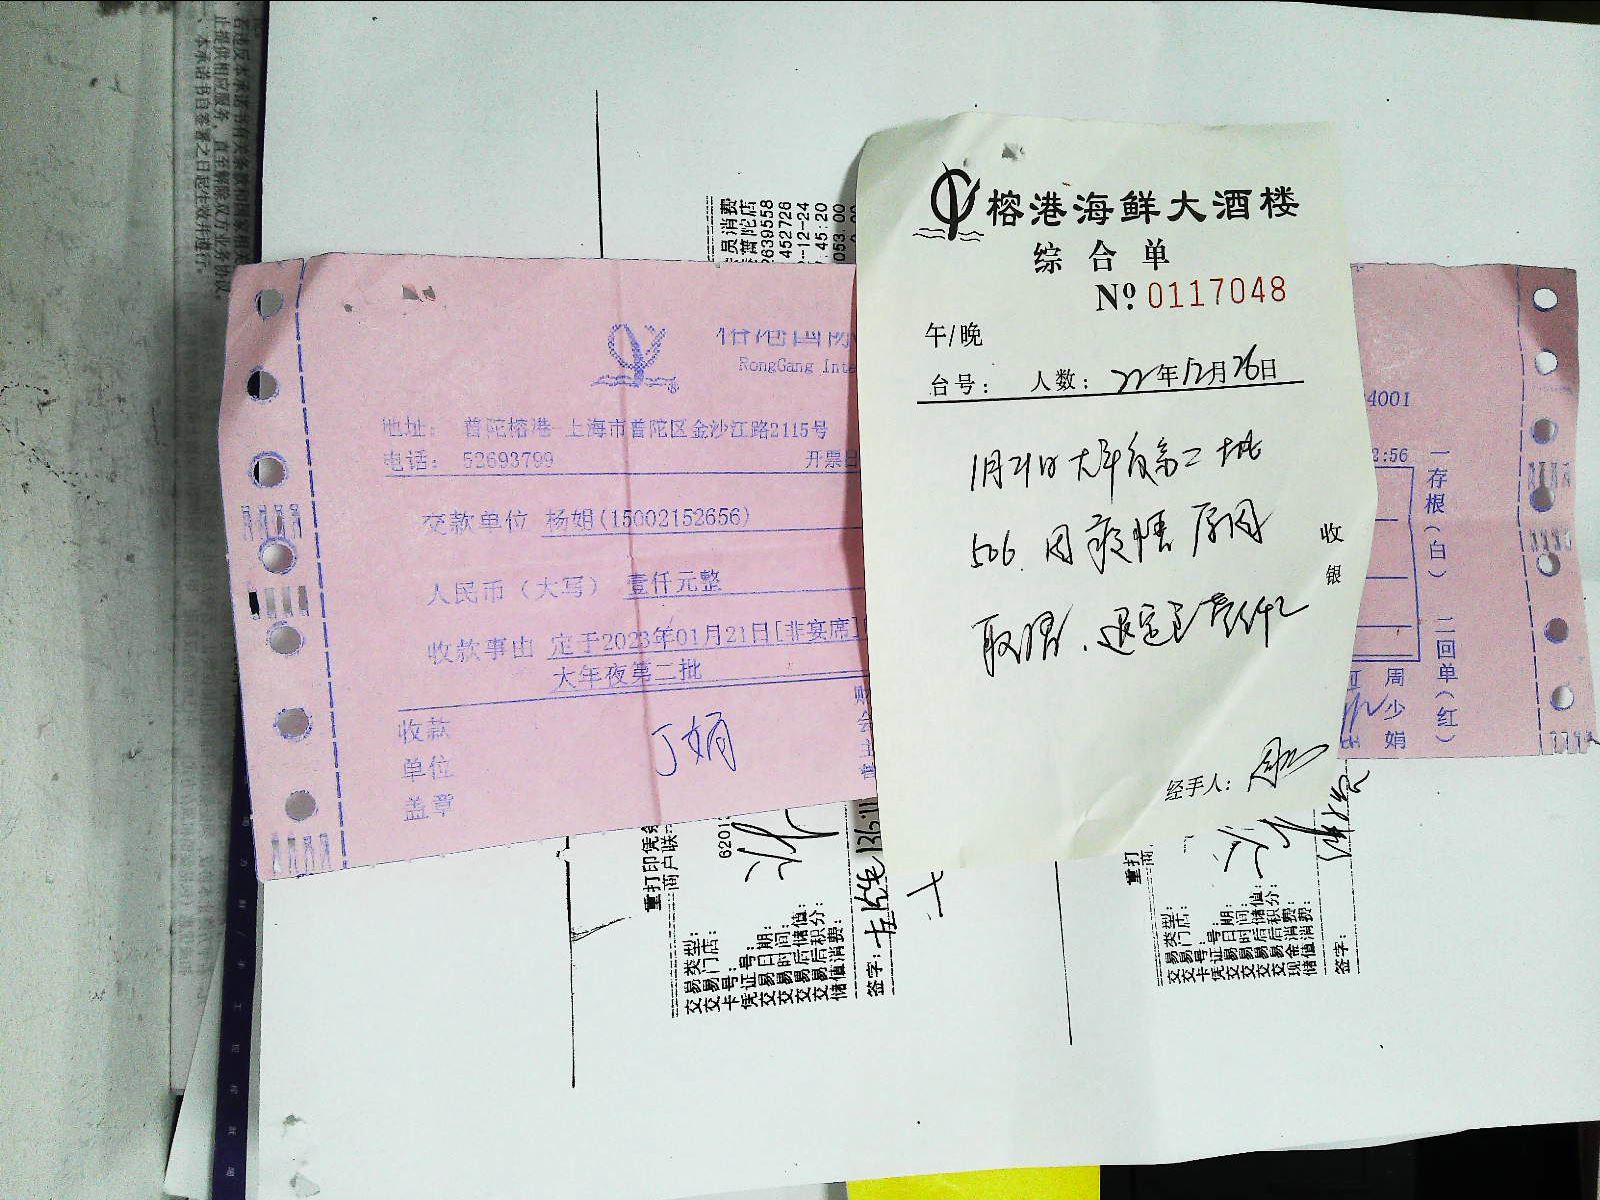 榕港海鲜大酒楼
综合单
Nº 0117048
午/晚
台号: 人数: 22年12月26日
1月21日大年夜第二批
506. 因疫情原因
取消.退定金壹仟元
收银
经手人:
RongGang Inte
地址: 普陀榕港 上海市普陀区金沙江路2115号
电话: 52693799 开票日
交款单位 杨娟(15002152656)
人民币(大写) 壹仟元整
收款事由 定于2023年01月21日[非宴席]
大年夜第二批
收款
单位
盖章
丁娟
4001
2:56
一存根(白) 二回单(红)
周少娟
员消费
普陀店
2639558
452726
-12-24
:45:20
053.00
重打印凭
商户联
6201
交易类型:
交易门店:
卡号:
凭证号:
交易日期:
交易时间:
交易后储值:
交易后积分:
储值消费:
签字:
重打
商
交易类型:
交易门店:
卡号:
凭证号:
交易日期:
交易时间:
交易后储值:
交易后积分:
现金消费:
储值消费:
签字:
若违反本承诺书有关条款和国家相关
止提供相应服务,直至解除双方业务协议。
、本承诺书自签署之日起生效并遵行。